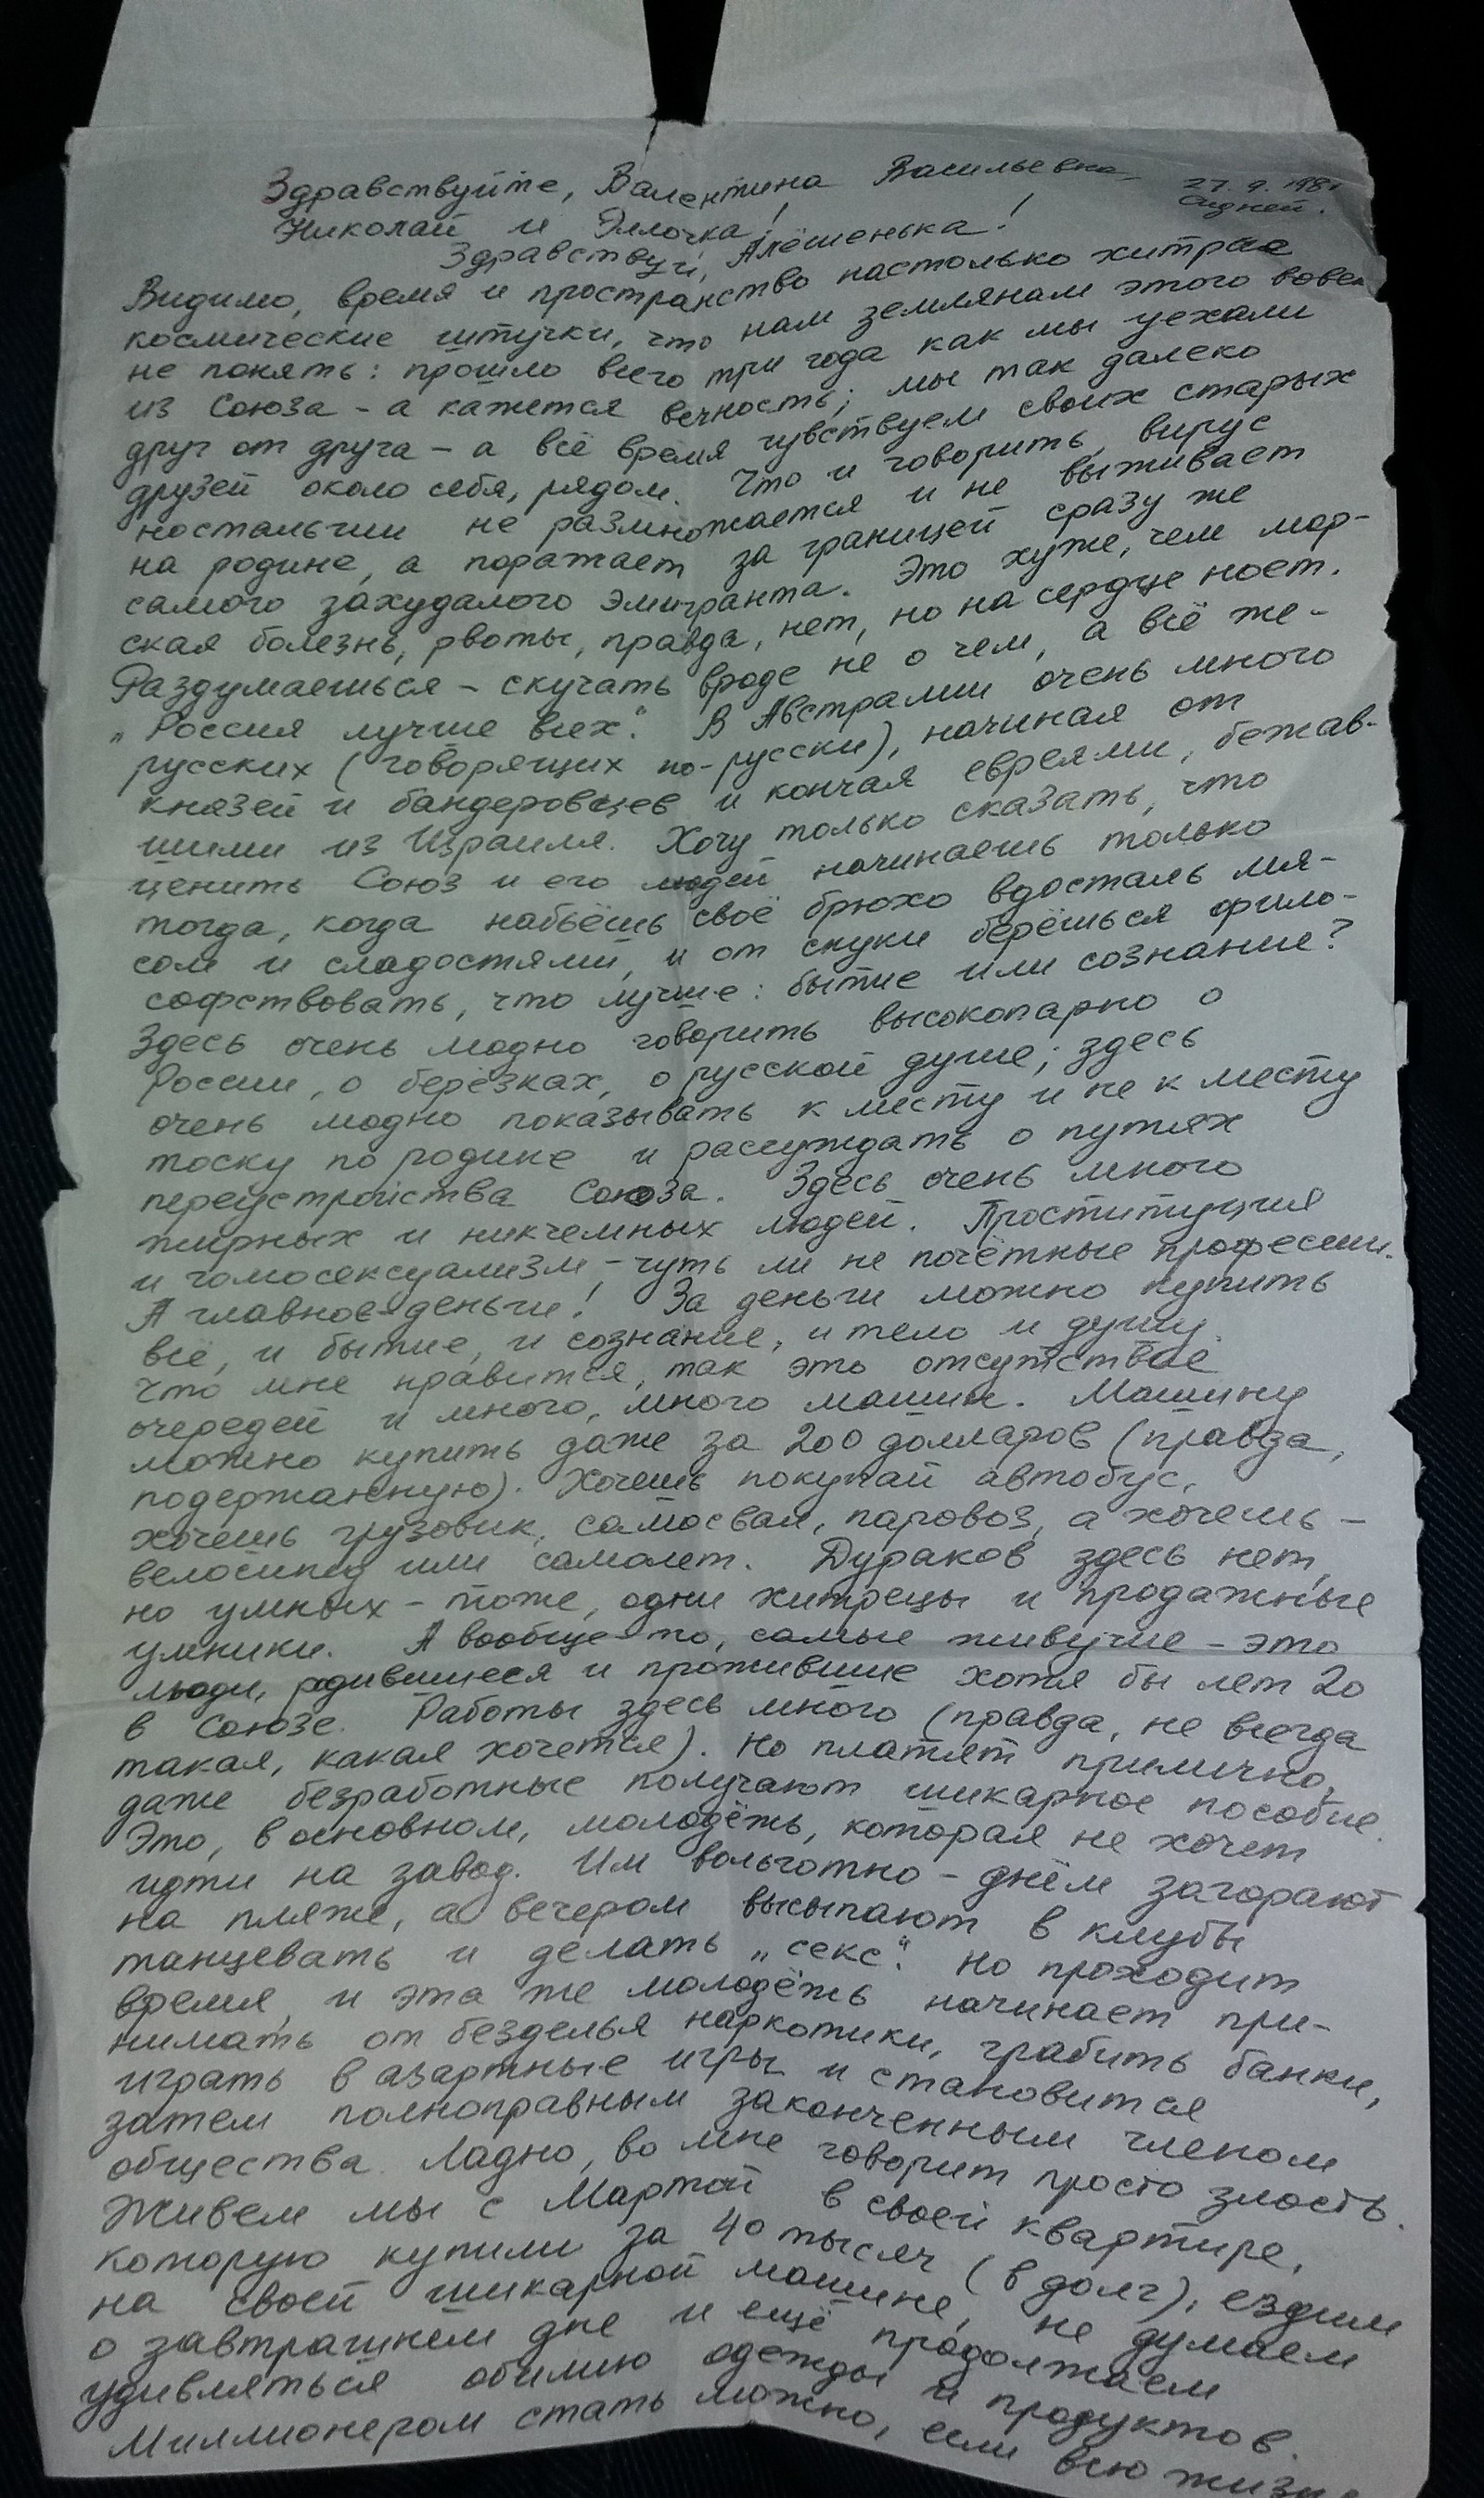 27. 9. 1981
Сидней.
Здравствуйте, Валентина Васильевна,
Николай и Эллочка!
Здравствуй, Алёшенька!
Видимо, время и пространство настолько хитрые
космические штучки, что нам землянам этого вовек
не понять: прошло всего три года как мы уехали
из Союза - а кажется вечность; мы так далеко
друг от друга - а всё время чувствуем своих старых
друзей около себя, рядом. Что и говорить, вирус
ностальгии не размножается и не выживает
на родине, а поражает за границей сразу же
самого захудалого эмигранта. Это хуже, чем мор-
ская болезнь, рвоты, правда, нет, но на сердце ноет.
Раздумаешься - скучать вроде не о чем, а всё же -
„Россия лучше всех“. В Австралии очень много
русских (говорящих по-русски), начиная от
князей и бандеровцев и кончая евреями, бежав-
шими из Израиля. Хочу только сказать, что
ценить Союз и его людей начинаешь только
тогда, когда набьёшь своё брюхо вдосталь мя-
сом и сладостями, и от скуки берёшься фило-
софствовать, что лучше: бытие или сознание?
Здесь очень модно говорить высокопарно о
России, о берёзках, о русской душе; здесь
очень модно показывать к месту и не к месту
тоску по родине и рассуждать о путях
переустройства Союза. Здесь очень много
жирных и никчемных людей. Проституция
и гомосексуализм - чуть ли не почётные професии.
А главное - деньги! За деньги можно купить
всё, и бытие, и сознание, и тело и душу.
Что мне нравится, так это отсутствие
очередей и много, много машин. Машину
можно купить даже за 200 долларов (правда,
подержанную). Хочешь покупай автобус,
хочешь грузовик, самосвал, паровоз, а хочешь -
велосипед или самолет. Дураков здесь нет,
но умных - тоже, одни хитрецы и продажные
умники. А вообще-то, самые живучие - это
люди, родившиеся и прожившие хотя бы лет 20
в Союзе. Работы здесь много (правда, не всегда
такая, какая хочется). Но платят прилично,
даже безработные получают шикарное пособие.
Это, в основном, молодёжь, которая не хочет
идти на завод. Им вольготно - днём загорают
на пляже, а вечером высыпают в клубы
танцевать и делать „секс“. Но проходит
время, и эта же молодёжь начинает при-
нимать от безделья наркотики, грабить банки,
играть в азартные игры и становится
затем полноправным законченным членом
общества. Ладно, во мне говорит просто злость.
Живем мы с Мартой в своей квартире,
которую купили за 40 тысяч (в долг), ездим
на своей шикарной машине, не думаем
о завтрашнем дне и ещё продолжаем
удивляться обилию одежды и продуктов.
Миллионером стать можно, если всю жизнь